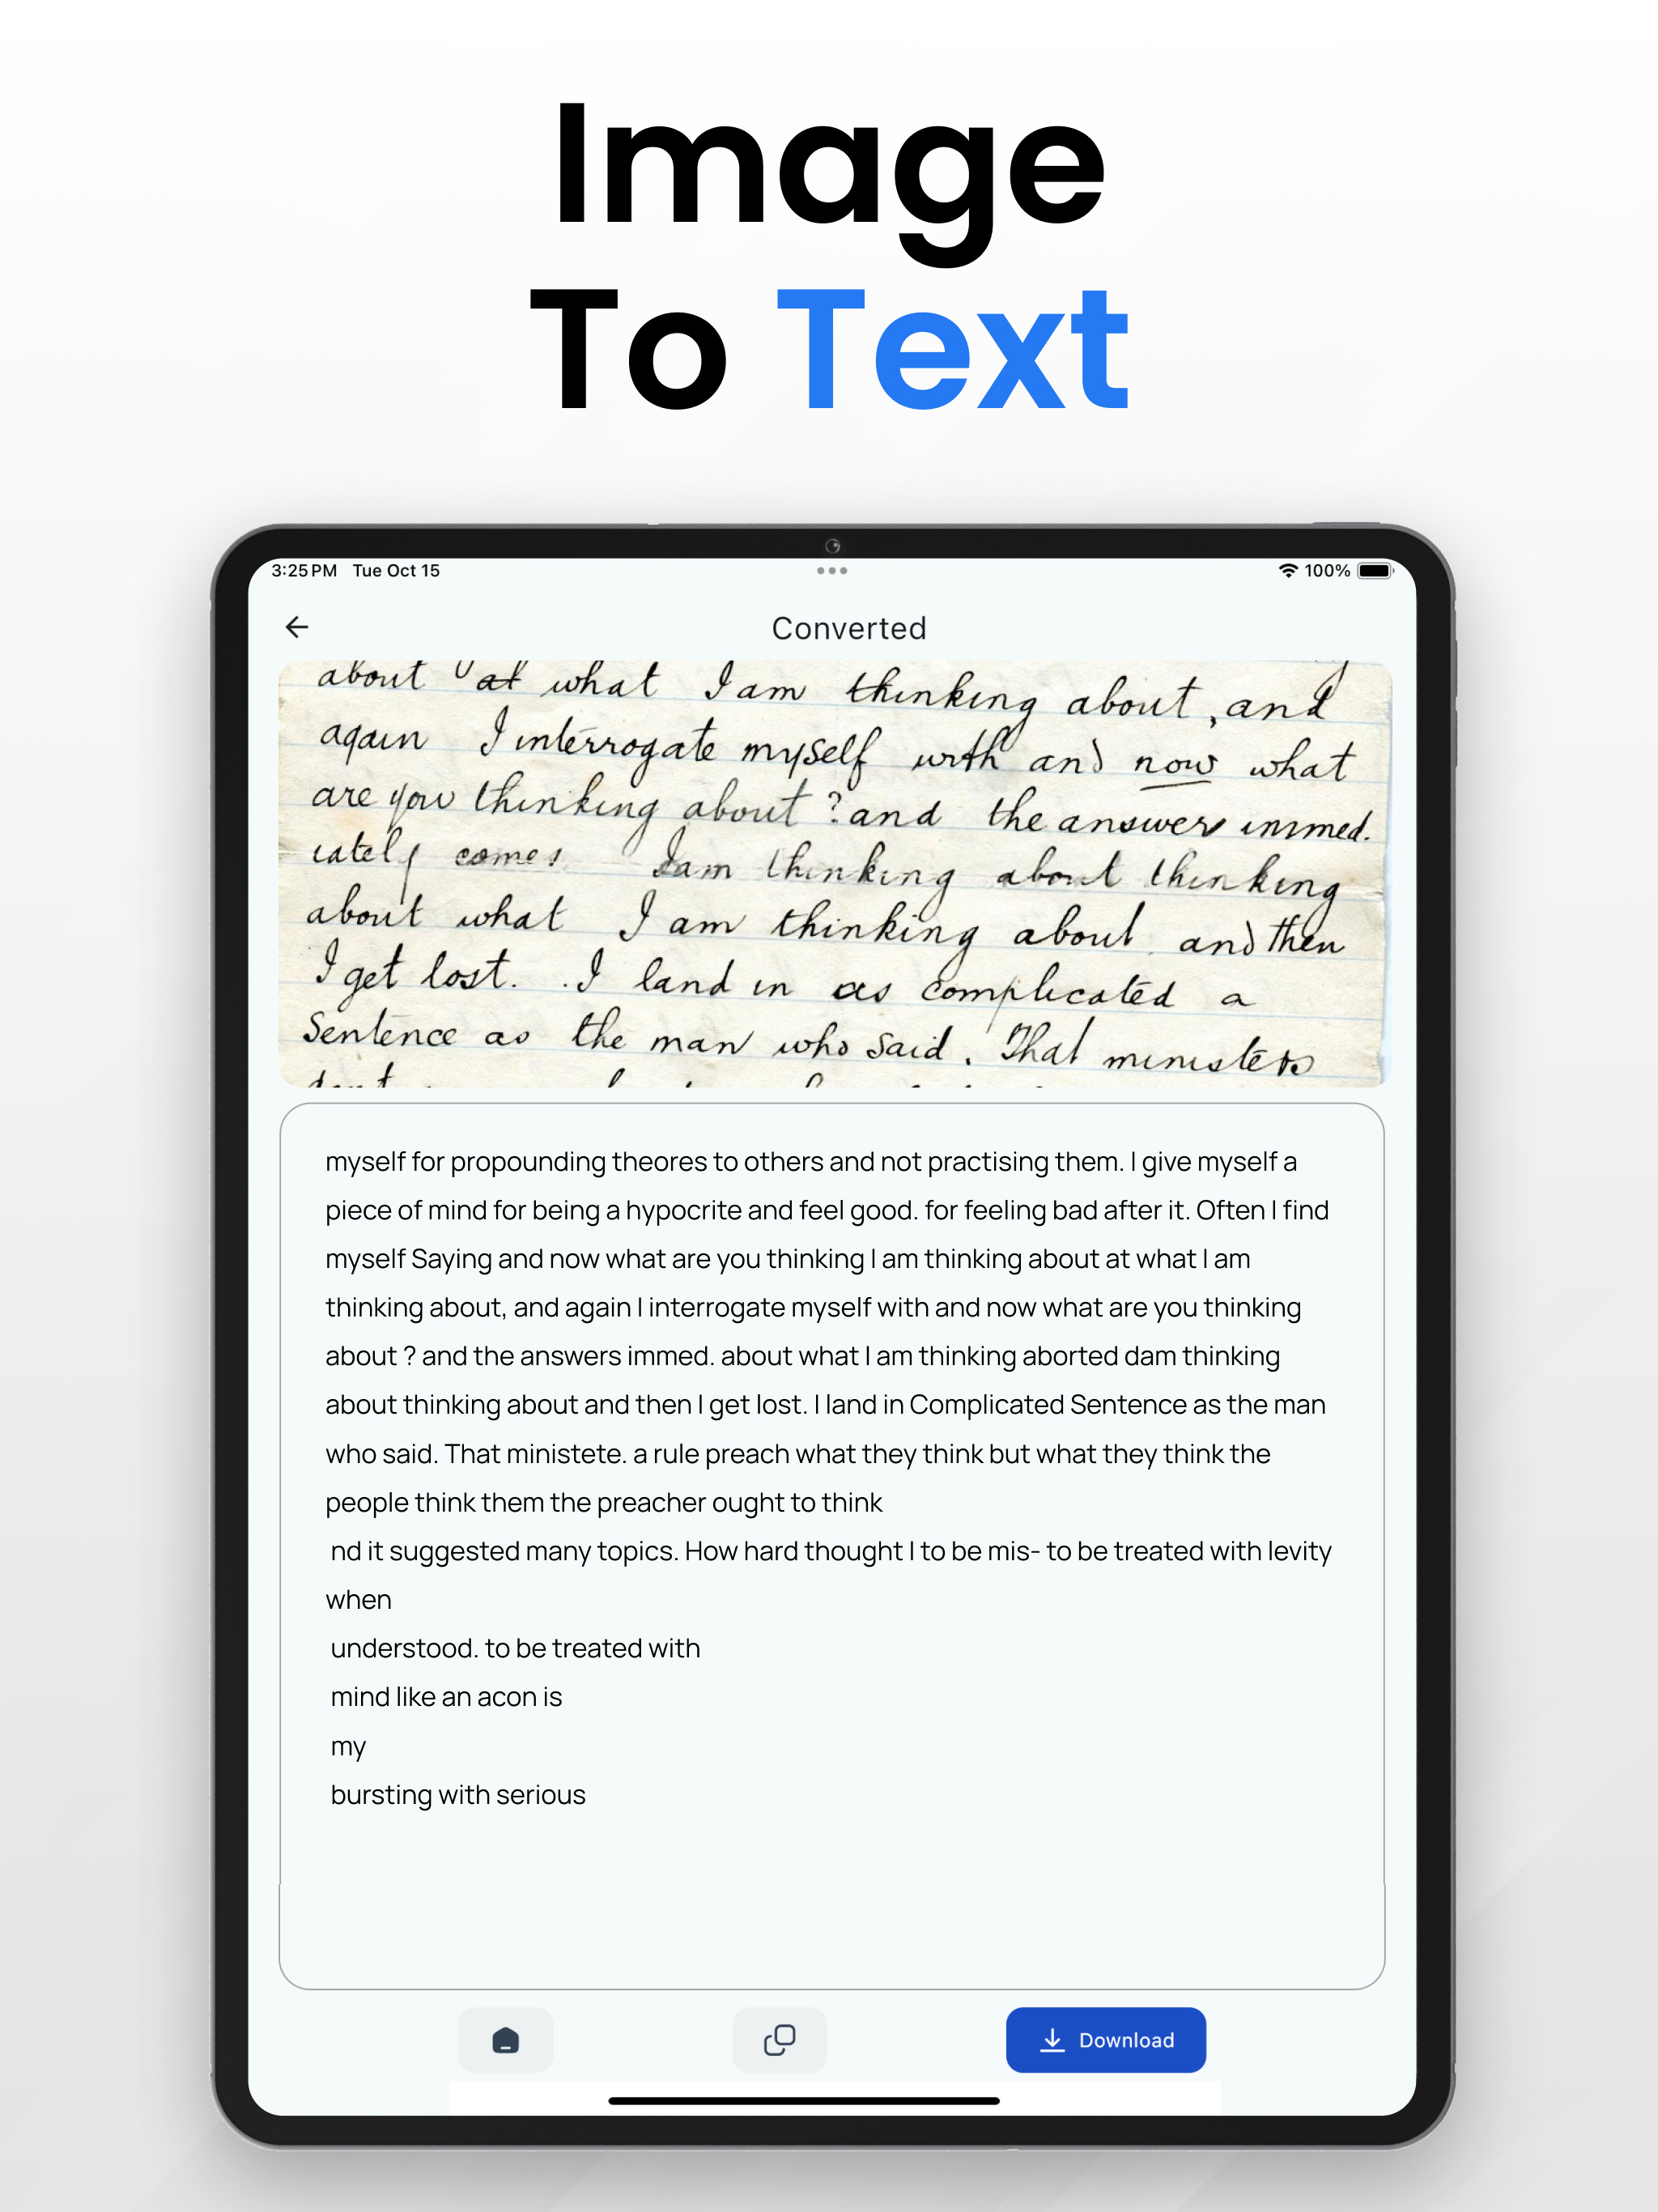 Image
To Text
3:25 PM Tue Oct 15
100%
Converted
about at what I am thinking about, and
again I interrogate myself with and now what
are you thinking about? and the answer immed.
iately comes I am thinking about thinking
about what I am thinking about and then
I get lost. . I land in as complicated a
Sentence as the man who said. That ministers
myself for propounding theores to others and not practising them. I give myself a
piece of mind for being a hypocrite and feel good. for feeling bad after it. Often I find
myself Saying and now what are you thinking I am thinking about at what I am
thinking about, and again I interrogate myself with and now what are you thinking
about ? and the answers immed. about what I am thinking aborted dam thinking
about thinking about and then I get lost. I land in Complicated Sentence as the man
who said. That ministete. a rule preach what they think but what they think the
people think them the preacher ought to think
nd it suggested many topics. How hard thought I to be mis- to be treated with levity
when
understood. to be treated with
mind like an acon is
my
bursting with serious
Download